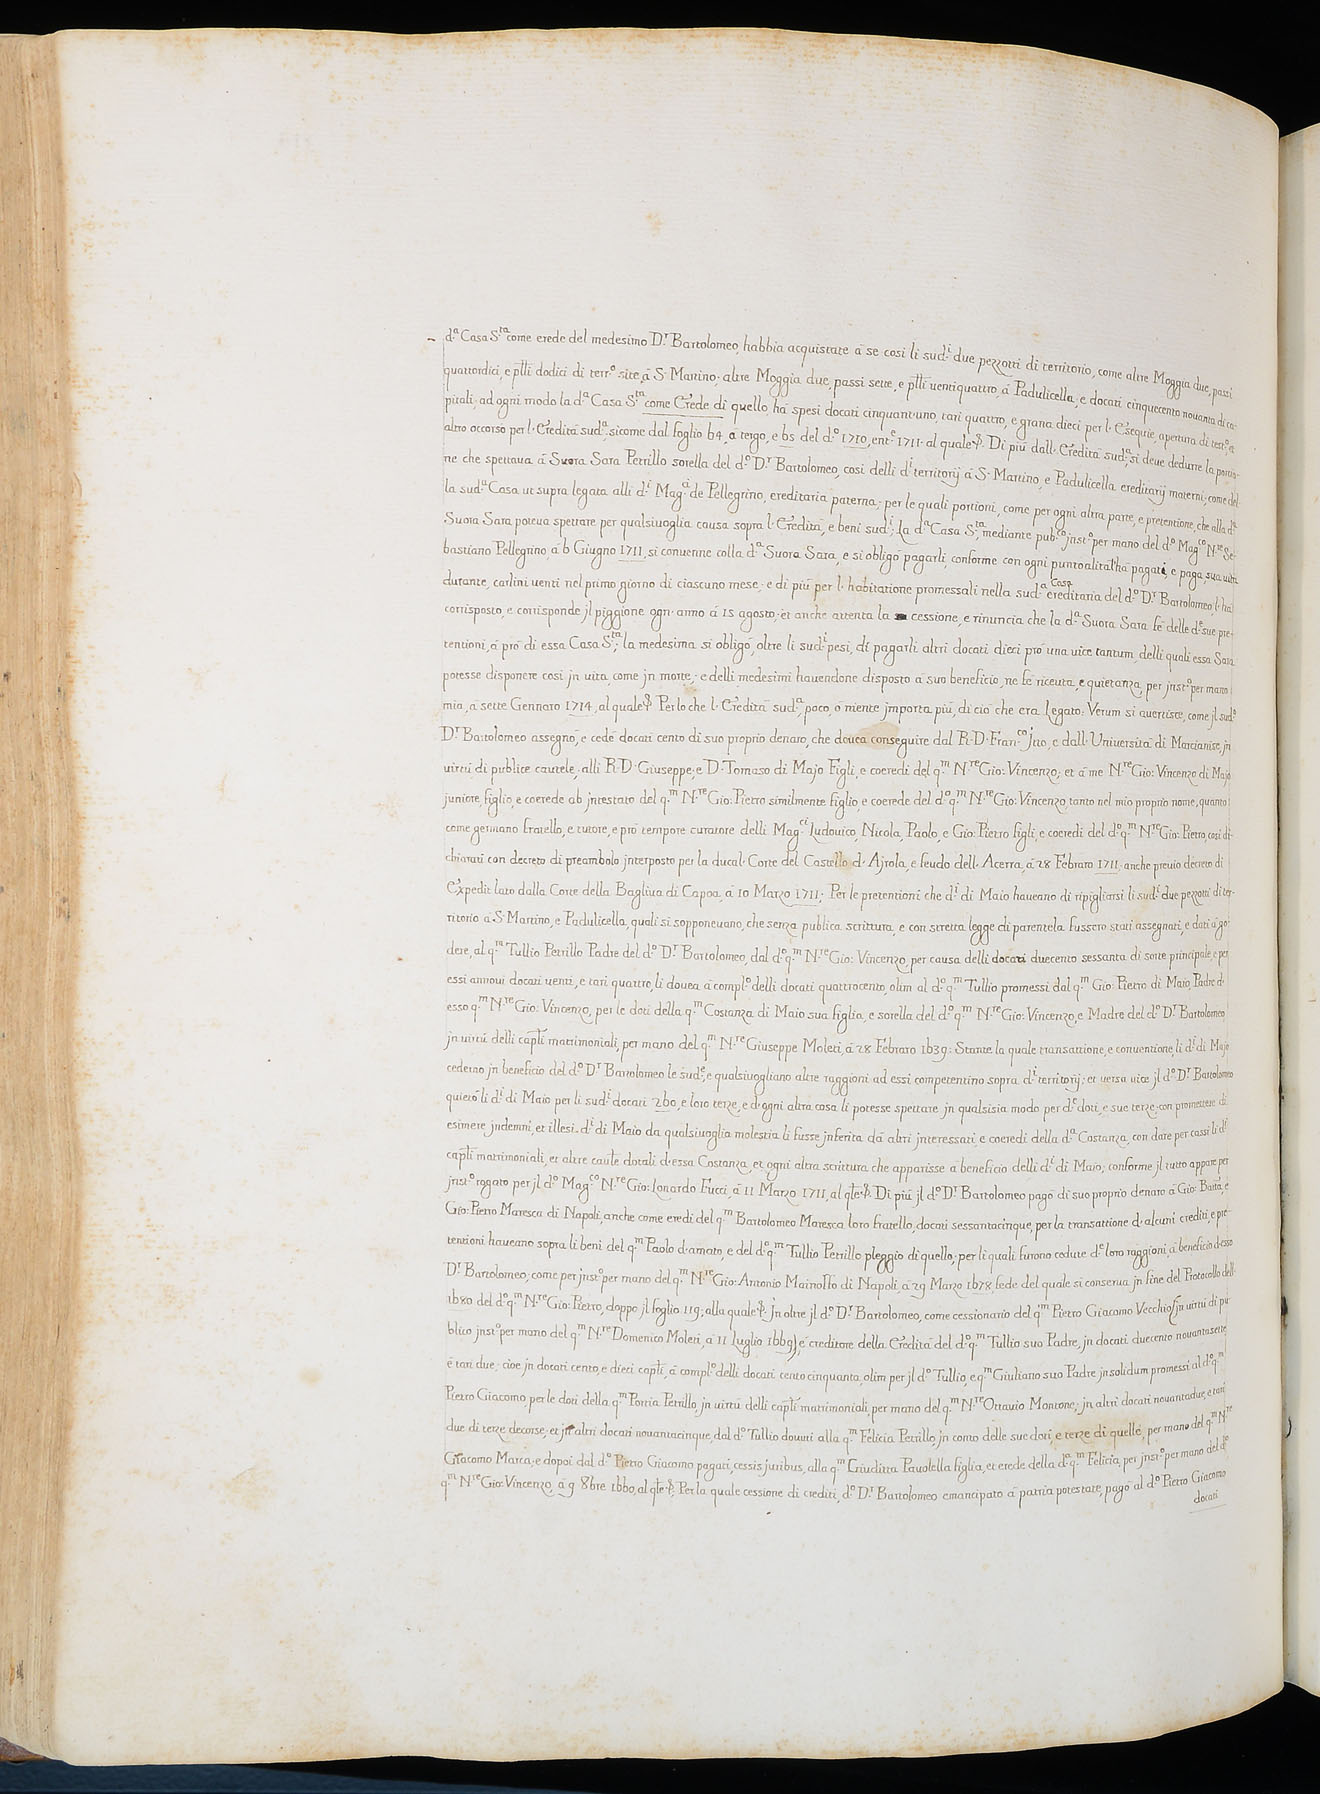 d.ª Casa S.ta come erede del medesimo D.r Bartolomeo, habbia acquistate à se così li sud.i due pezzotti di territorio, come altre Moggia due, passi
quattordici, e p̃tli dodici di terr.o site, à S. Martino; altre Moggia due, passi sette, e p̃tli uentiquattro, à Padulicella, e docati cinquecento nouanta di ca=
pitali; ad ogni modo la d.ª Casa S.ta come Erede di quello, hà spesi docati cinquant'uno, tarì quattro, e grana dieci per l'Esequie, apertura di test.o, et
altro occorso per l'Eredità sud.ª, sicome dal foglio 64, à tergo, e 65 del d.o 1710, ent.e 1711. al quale &. Di più dall'Eredità sud.ª, si deue dedurre la portio=
ne che spettaua à Suora Sara Petrillo sorella del d.o D.r Bartolomeo, così delli d.i territorij à S. Martino, e Padulicella ereditarij materni; come del=
la sud.ª Casa ut supra legata alli d.i Mag.ci de Pellegrino, ereditaria paterna; per le quali portioni, come per ogni altra parte, e pretentione, che alla d.ª
Suora Sara poteua spettare per qualsiuoglia causa sopra l'Eredità, e beni sud.i; La d.ª Casa S.ta, mediante pub.co jnst.o per mano del d.o Mag.co N.re Se=
bastiano Pellegrino, à 6 Giugno 1711, si conuenne colla d.ª Suora Sara, e si obligò pagarli, conforme con ogni puntoalità l'hà pagati, e paga, sua uita
durante, carlini uenti nel primo giorno di ciascuno mese; e di più per l'habitatione promessali nella sud.ª Casa ereditaria del d.o D.r Bartolomeo, l'hà
corrisposto, e corrisponde jl piggione ogn'anno à 15 agosto; et anche attenta la cessione, e rinuncia che la d.ª Suora Sara fè delle d.e sue pre=
tentioni, à prò di essa Casa S.ta; la medesima si obligò, oltre li sud.i pesi, di pagarli altri docati dieci prò una uice tantum, delli quali essa Sara
potesse disponere così jn uita, come jn morte; e delli medesimi hauendone disposto à suo beneficio, ne fè riceuta, e quietanza, per jnst.o per mano
mia, à sette Gennaro 1714, al quale &. Perloche l'Eredità sud.ª, poco, ò niente jmporta più, di ciò che era Legato: Verum si auertisce, come jl sud.o
D.r Bartolomeo assegnò, e cedè docati cento di suo proprio denaro, che douea conseguire dal R. D. Fran.co Jtto, e dall'Uniuersità di Marcianise, jn
uirtù di publice cautele, alli R. D. Giuseppe, e D. Tomaso di Majo Figli, e coeredi del q.m N.re Gio: Vincenzo; et à me N.re Gio: Vincenzo di Majo
juniore, figlio, e coerede ab jntestato del q.m N.re Gio: Pietro similmente figlio, e coerede del d.o q.m N.re Gio: Vincenzo, tanto nel mio proprio nome, quanto
come germano fratello, e tutore, e prò tempore curatore delli Mag.ci Ludouico, Nicola, Paolo, e Gio: Pietro figli, e coeredi del d.o q.m N.re Gio: Pietro, così di=
chiarati con decreto di preambolo jnterposto per la ducal Corte del Castello d'Ajrola, e feudo dell'Acerra, à 28 Febraro 1711, anche preuio decreto di
Expedit lato dalla Corte della Bagliua di Capoa, à 10 Marzo 1711; Per le pretentioni che d.i di Maio haueano di ripigliarsi li sud.i due pezzotti di ter=
ritorio à S. Martino, e Padulicella, quali si supponeuano, che senza publica scrittura, e con stretta legge di parentela fussero stati assegnati, e dati à go=
dere, al q.m Tullio Petrillo Padre del d.o D.r Bartolomeo, dal d.o q.m N.re Gio: Vincenzo, per causa delli docati duecento sessanta di sorte principale, e per
essi annoui docati uenti, e tarì quattro, li douea à compl.o delli docati quattrocento, olim al d.o q.m Tullio promessi dal q.m Gio: Pietro di Maio, Padre d'
esso q.m N.re Gio: Vincenzo, per le doti della q.m Costanza di Maio sua figlia, e sorella del d.o q.m N.re Gio: Vincenzo, e Madre del d.o D.r Bartolomeo
jn uirtù delli cap̃tli matrimoniali, per mano del q.m N.re Giuseppe Moleti, à 28 Febraro 1639: Stante la quale transattione, e conuentione, li d.i di Majo
cederno jn beneficio del d.o D.r Bartolomeo le sud.e, e qualsiuogliano altre raggioni ad essi competentino sopra d.i territorij; et uersa uice jl d.o D.r Bartolomeo
quietò li d.i di Maio per li sud.i docati 260, e loro terze, e d'ogni altra cosa li potesse spettare jn qualsisia modo per d.e doti, e sue terze; con promettere di
esimere jndemni, et illesi d.i di Maio da qualsiuoglia molestia li fusse jnferita dà altri jnteressati, e coeredi della d.ª Costanza, con dare per cassi li d.i
cap̃tli matrimoniali, et altre caut̃e dotali d'essa Costanza, et ogni altra scrittura che apparisse à beneficio delli d.i di Maio; conforme jl tutto appare per
jnst.o rogato per jl d.o Mag.co N.re Gio: Lonardo Fucci, à 11 Marzo 1711, al q̃le &. Di più jl d.o D.r Bartolomeo pagò di suo proprio denaro à Gio: Batt̃a, e
Gio: Pietro Maresca di Napoli, anche come eredi del q.m Bartolomeo Maresca loro fratello, docati sessantacinque, per la transattione d'alcuni crediti, e pre=
tentioni haueano sopra li beni del q.m Paolo d'amato, e del d.o q.m Tullio Petrillo pleggio di quello; per li quali furono cedute d.e loro raggioni, à beneficio d'esso
D.r Bartolomeo; come per jnst.o per mano del q.m N.re Gio: Antonio Mainolfo di Napoli, à 29 Marzo 1678, fede del quale si conserua jn fine del Protocollo dell'
1680 del d.o q.m N.re Gio: Pietro, doppo jl foglio 119; alla quale &. Jn oltre jl d.o D.r Bartolomeo, come cessionario del q.m Pietro Giacomo Vecchio (jn uirtù di pu=
blico jnst.o per mano del q.m N.re Domenico Moleti, à 11 Luglio 1669) è creditore della Eredità del d.o q.m Tullio suo Padre, jn docati duecento nouantasette,
e tarì due; cioè jn docati cento, e dieci cap̃tli, à compl.o delli docati cento cinquanta, olim per jl d.o Tullio, e q.m Giuliano suo Padre jnsolidum promessi al d.o q.m
Pietro Giacomo, per le doti della q.m Portia Petrillo, jn uirtù delli cap̃tli matrimoniali, per mano del q.m N.re Ottauio Montone; jn altri docati nouantadue, e tarì
due di terze decorse; et jn altri docati nouantacinque, dal d.o Tullio douuti alla q.m Felicia Petrillo, jn conto delle sue doti, e terze di quelle, per mano del q.m N.re
Giacomo Marca; e dopoi dal d.o Pietro Giacomo pagati, cessis juribus, alla q.m Giuditta Pauolella figlia, et erede della d.ª q.m Felicia, per jnst.o per mano del d.o
q.m N.re Gio: Vincenzo, à 9 8bre 1660, al q̃le &. Per la quale cessione di crediti, d.o D.r Bartolomeo emancipato à patria potestate, pagò al d.o Pietro Giacomo
docati